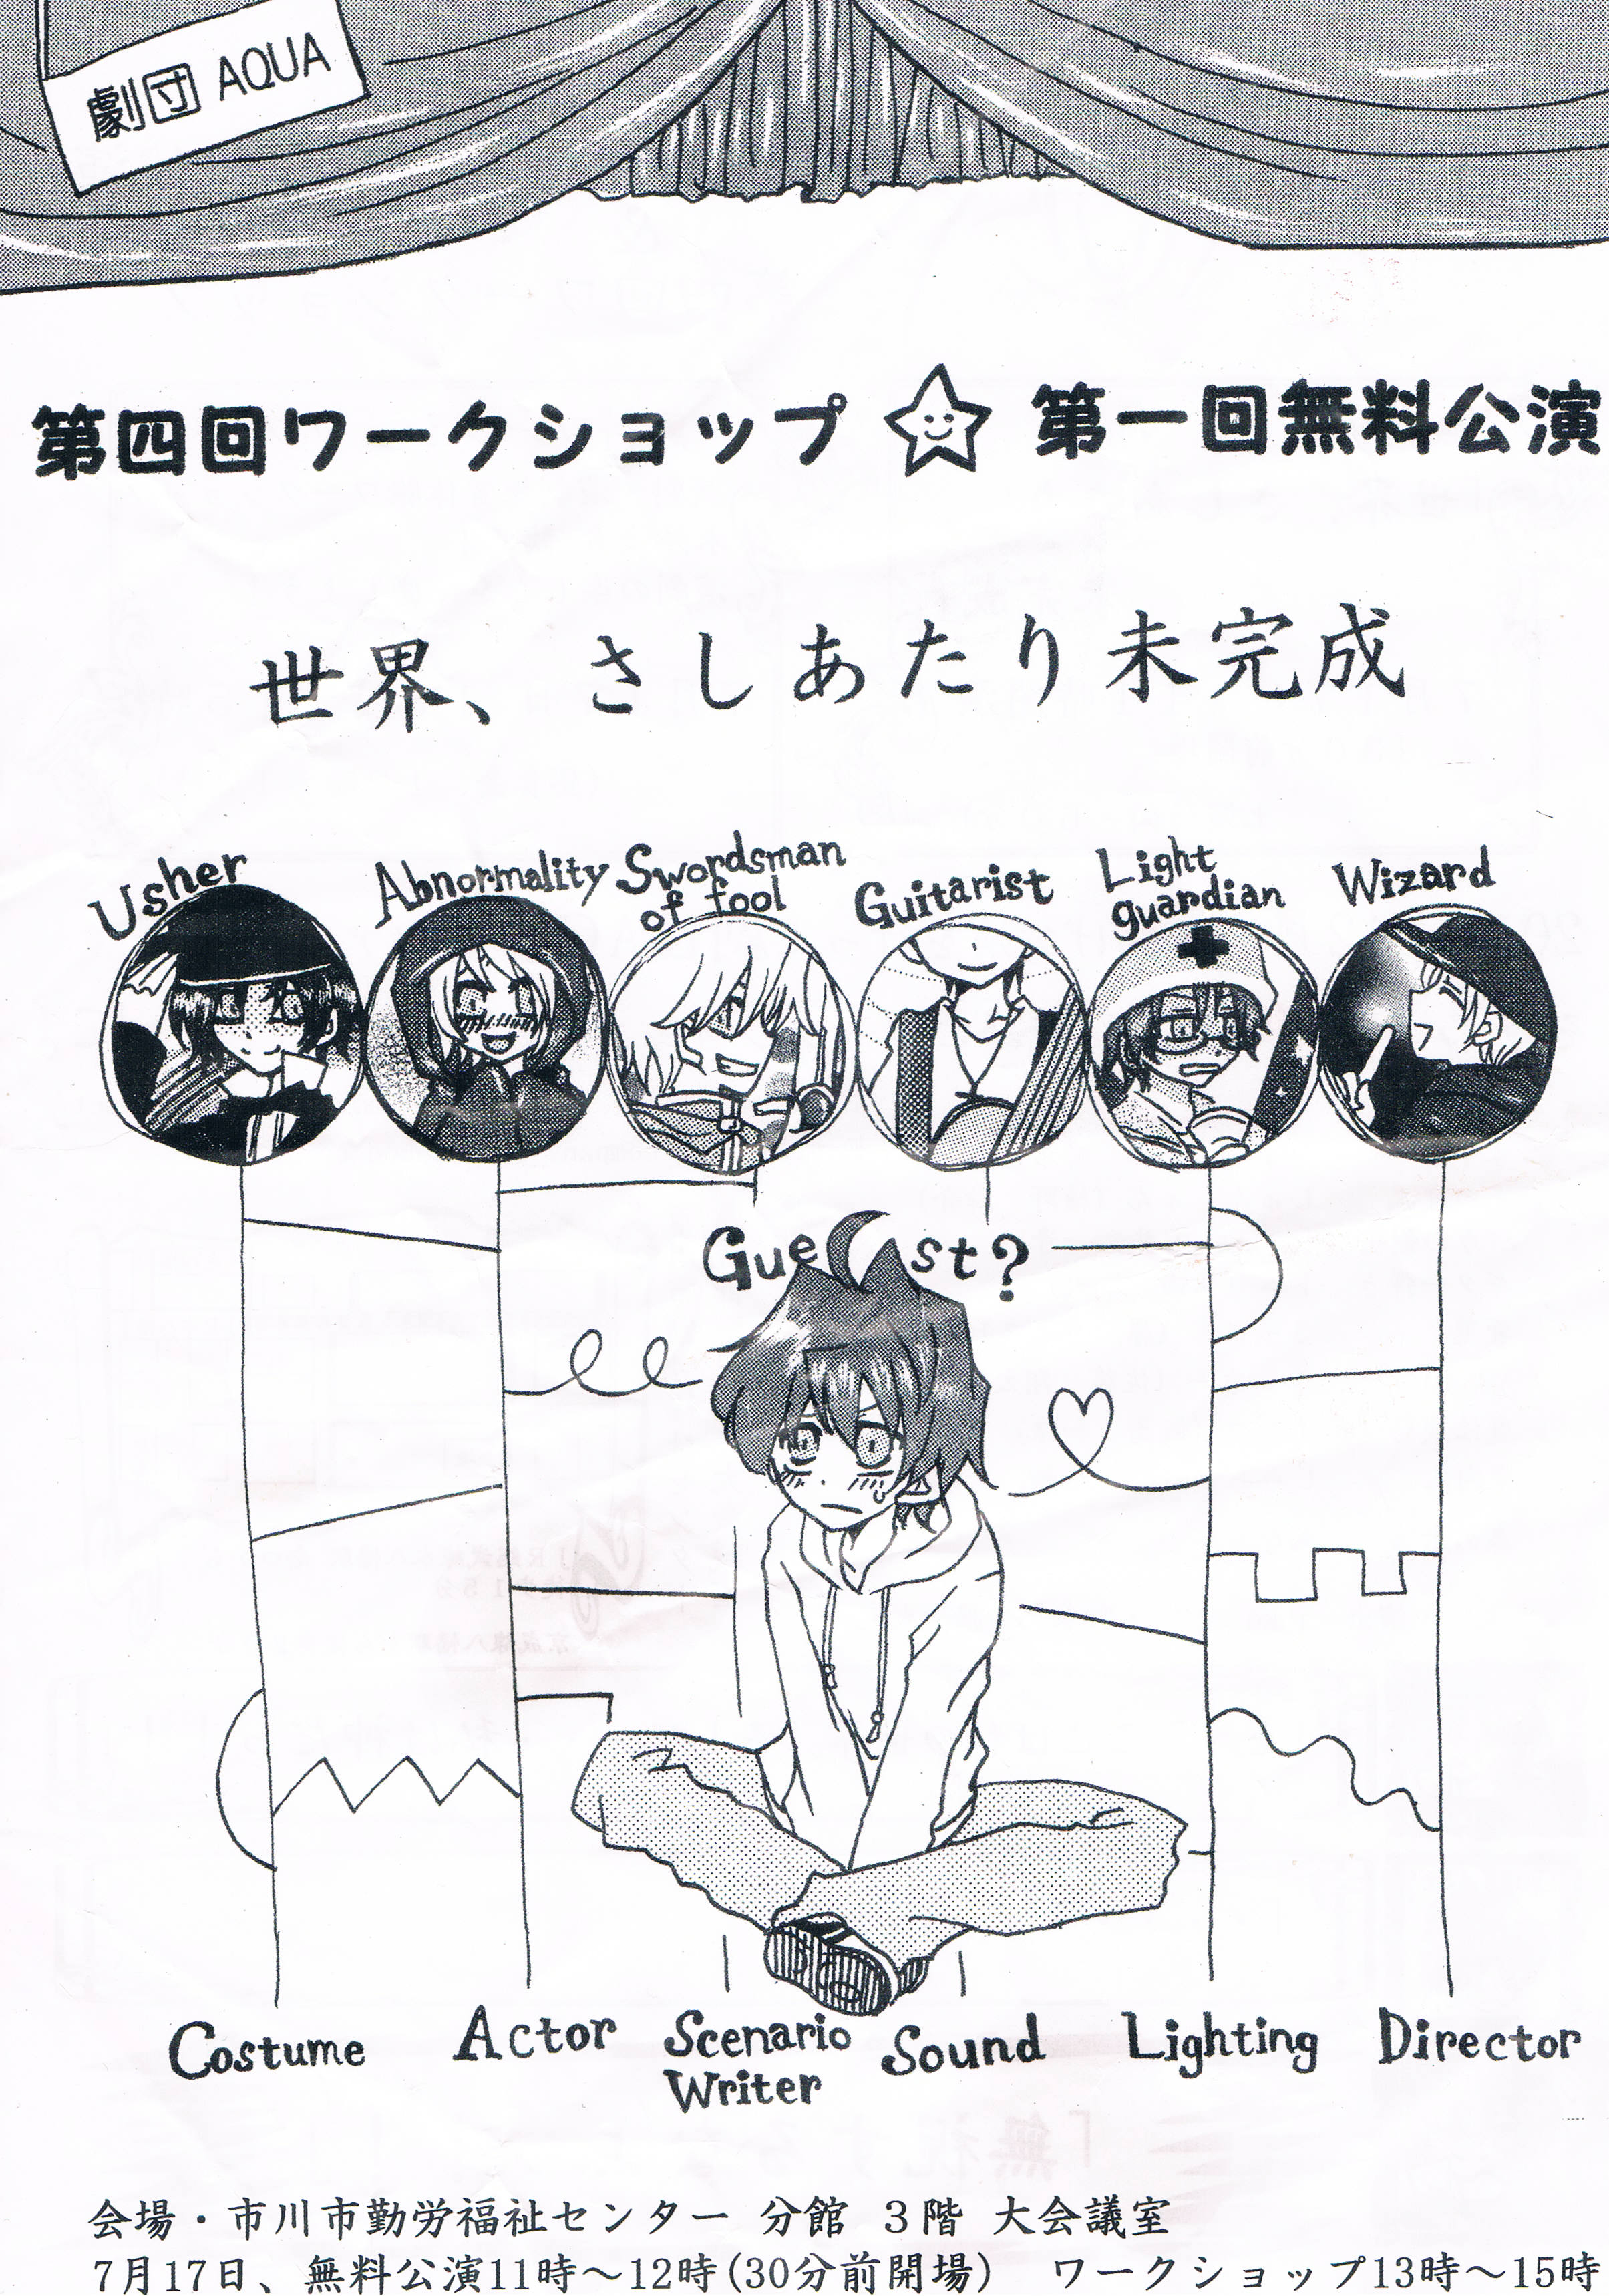 劇団 AQUA
第四回ワークショップ ☆ 第一回無料公演
世界、さしあたり未完成
Usher
Abnormality
Swordsman
of fool
Guitarist
Light
guardian
Wizard
Guest?
Costume
Actor
Scenario
Writer
Sound
Lighting
Director
会場・市川市勤労福祉センター 分館 3階 大会議室
7月17日、無料公演11時～12時(30分前開場) ワークショップ13時～15時